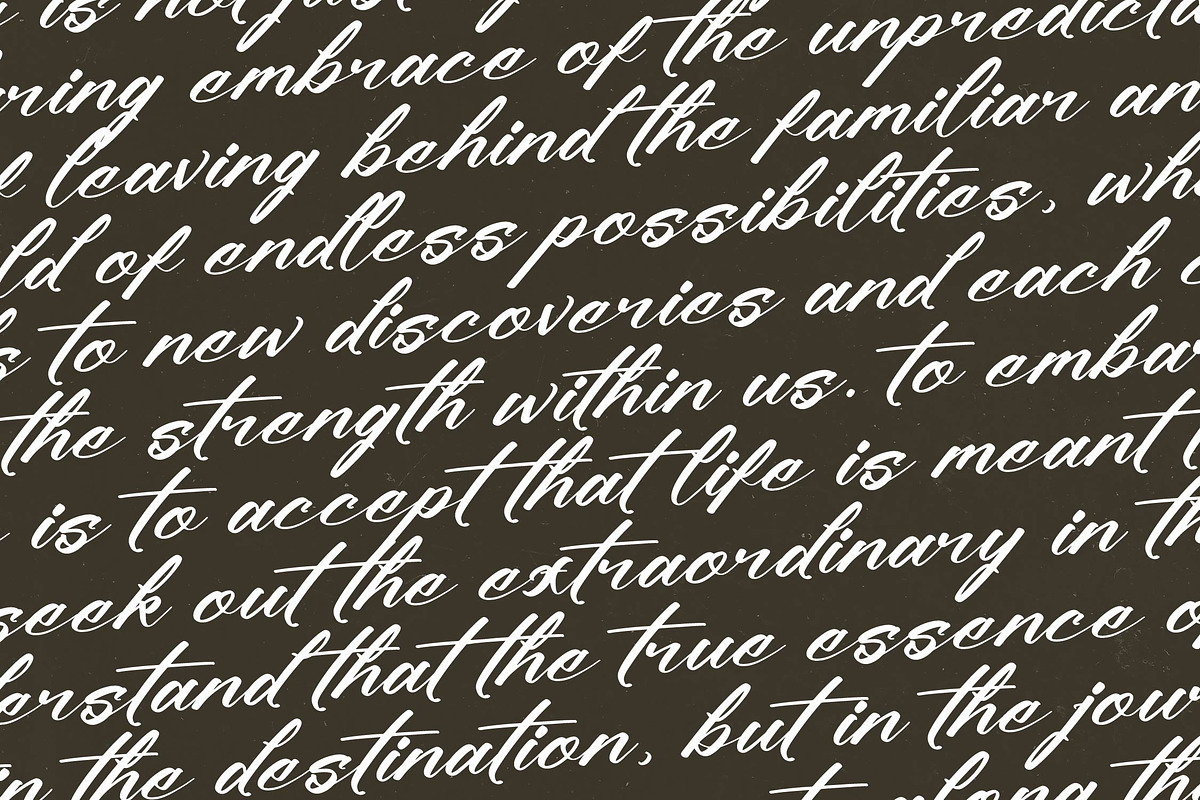 is not just
ring embrace of the unpredicta
leaving behind the familiar an
ld of endless possibilities, whe
s to new discoveries and each
the strength within us. to embar
is to accept that life is meant t
seek out the extraordinary in th
derstand that the true essence o
in the destination, but in the jour
along the